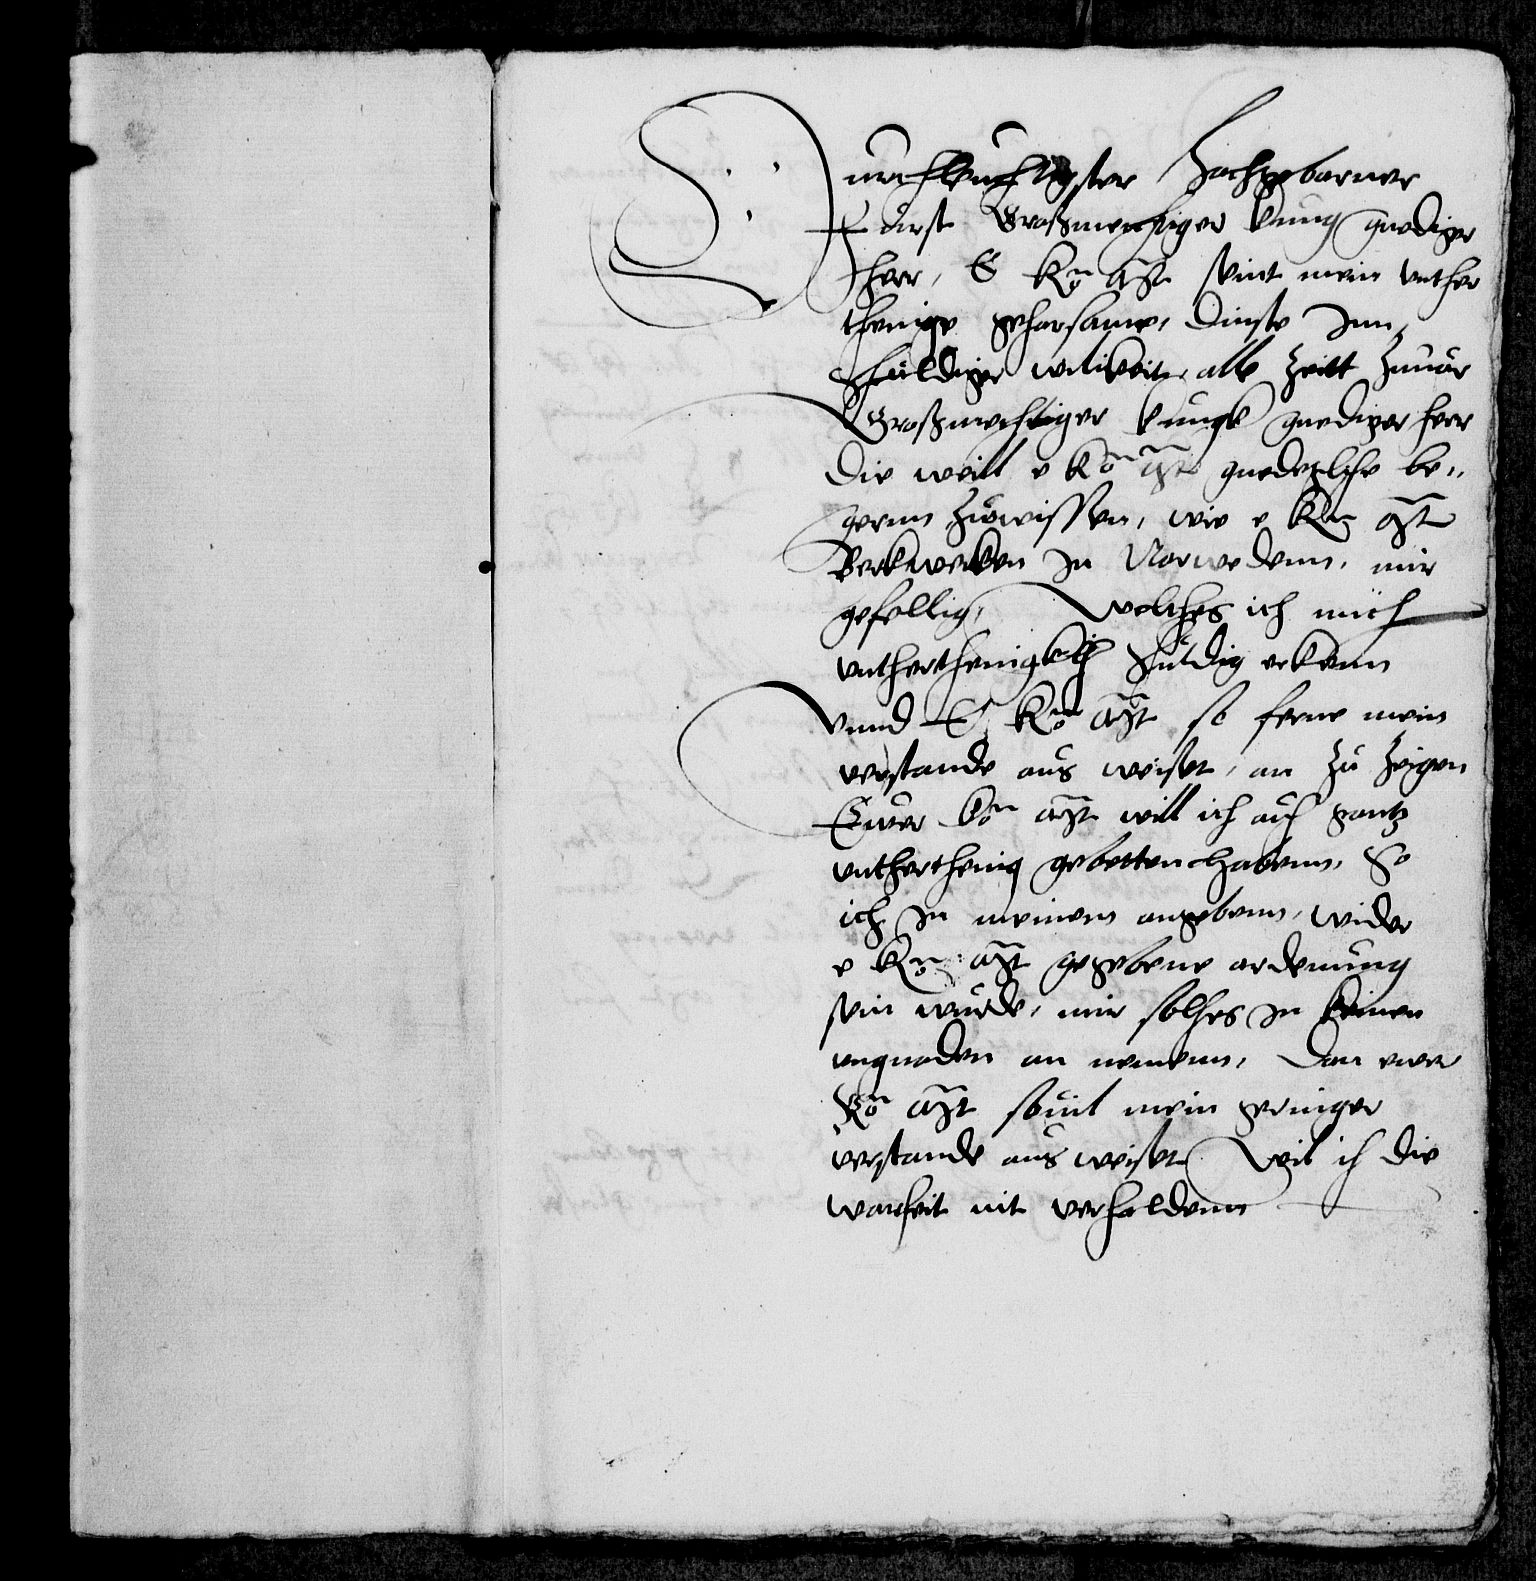 Durchleuchtigster Hochgeborner
Furst Großmechtiger kunig gnediger
herr, E Ko Mat seint mein vnther
thenige gehorsame, dinste Inn
schuldiger willikeit alle zeitt zuuor
Großmechtiger kungk gnediger herr
die weill e Ko Mat gnedeglche be„
gernn zuwissen, wie e Ko Mat
Berkwerken In Norwedenn, mir
gefellig, welches ich mich
vntherthenigklich schuldig erkenn
vnnd E Ko Mat so ferne mein
verstande aus weiset, an zu zeigen
Ewer Ko Mat will ich auch gantz
vntherthenig gebetten habenn, So
ich In meinem angebenn, wider
e Ko Mat gegebene ordenung
sein wurde, mir solhes In keinen
vngnaden an nemenn, dan ewer
Ko Mat souil mein geringer
verstande aus weiset wil ich die
warheit nit verhaldenn